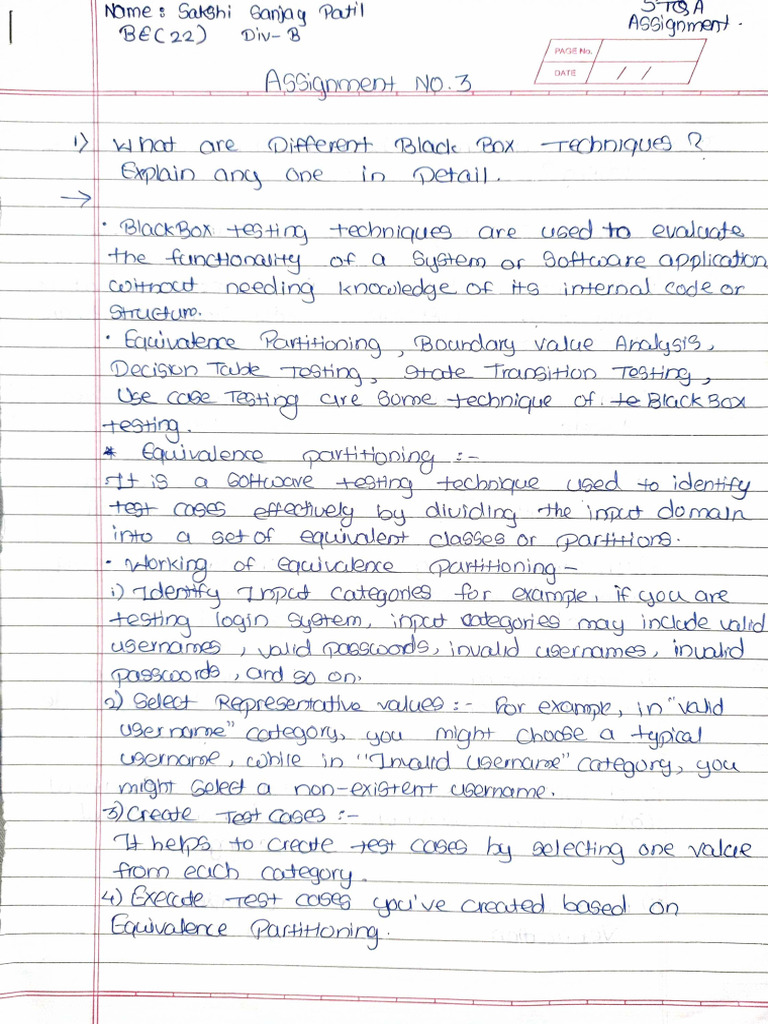 Name: Sakshi Sanjay Patil
STQA
BE(22) Div-B
Assignment.
PAGE No.
DATE / /
Assignment No.3
1) What are Different Black Box Techniques?
Explain any one in Detail.
→
• BlackBox testing techniques are used to evaluate
the functionality of a system or software application
without needing knowledge of its internal code or
structure.
• Equivalence Partitioning, Boundary value Analysis,
Decision Table Testing, State Transition Testing,
Use case Testing are some technique of te Black Box
testing.
* Equivalence partitioning :-
It is a software testing technique used to identify
test cases effectively by dividing the input domain
into a set of equivalent classes or partitions.
• Working of equivalence partitioning -
i) Identify Input categories for example, if you are
testing login system, input categories may include valid
usernames, valid passwords, invalid usernames, invalid
passwords, and so on.
2) Select Representative values :- For example, in "valid
username" category, you might choose a typical
username, while in "Invalid username" category, you
might select a non-existent username.
3) Create Test cases :-
It helps to create test cases by selecting one value
from each category.
4) Execute Test cases you've created based on
Equivalence Partitioning.